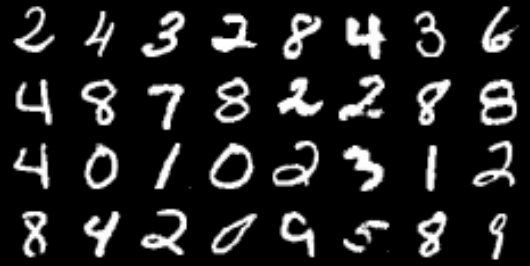 2 4 3 2 8 4 3 6
4 8 7 8 2 2 8 8
4 0 1 0 2 3 1 2
8 4 2 0 9 5 8 9